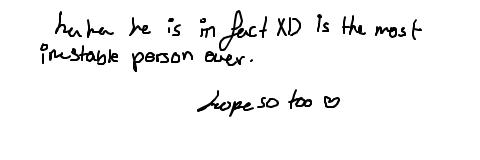 haha he is in fact XD is the most
inustable person over.
hope so too ♡